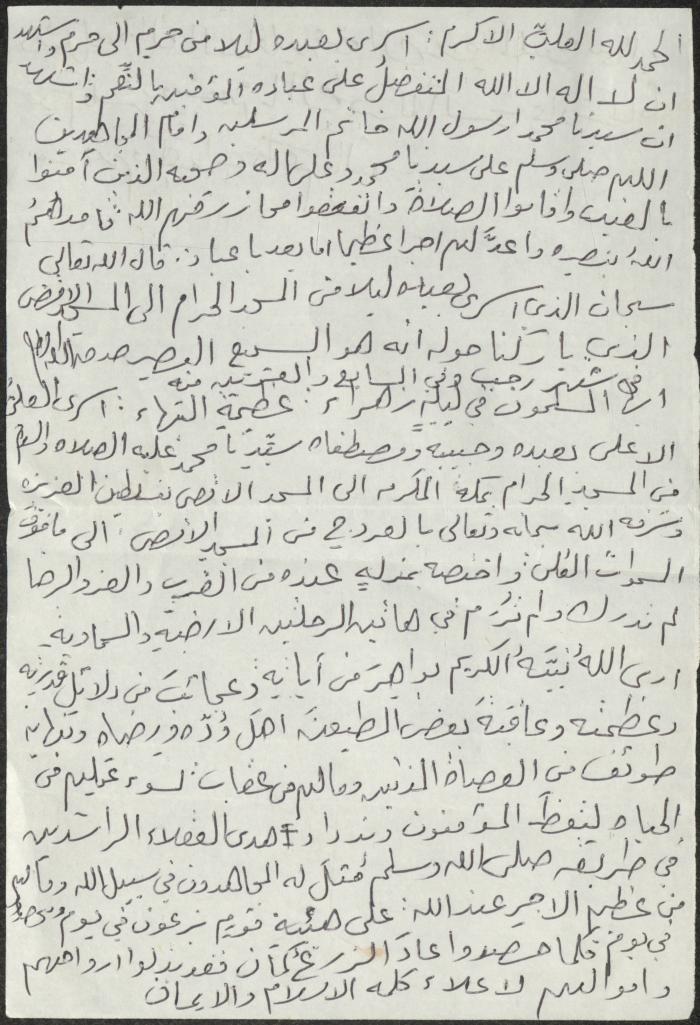 الحمد لله العلي الاكرم : اسرى بعبده ليلا من حرم الى حرم واشهد
ان لا اله الا الله المتفضل على عباده المؤمنين بالنعم واشهد
ان سيدنا محمدا رسول الله خاتم المرسلين وامام المجاهدين
اللهم صلى وسلم على سيدنا محمد وعلى اله وصحبه الذين آمنوا
بالغيب واقاموا الصلاة وانفقوا مما رزقهم الله فامدهم
الله بنصره واعد لهم اجرا عظيما اما بعد يا عباد : قال الله تعالى
سبحان الذي اسرى بعبده ليلا من المسجد الحرام الى المسجد الاقصى
الذي باركنا حوله انه هو السميع البصير صدق الله العظيم
ايها المسلمون في شهر رجب وفي السابع والعشرين منه
في ليلة زهراء : عظيمة البهاء : اسرى العلي
الاعلى بعبده وحبيبه ومصطفاه سيدنا محمد عليه الصلاه والسلام
من المسجد الحرام بمكة المكرمه الى المسجد الاقصى بفلسطين العزيزه
وشرفه الله سبحانه وتعالى بالعروج من المسجد الاقصى الى ما فوق
السموات العلى : واختصه بمنزلة عنده من القرب والعز والرضا
لم تدرك ولم ترم في هاتين الرحلتين الارضية والسماوية
ارى الله نبيه الكريم بواهر من آياته وعجائب من دلائل قدرته
وعظمته وعاقبة بعض المطيعين اهل وده ورضاه ونهاية
طوائف من العصاة المذنبين ومالهم من عقاب : لسوء عملهم في
الحياه ليتعظ المؤمنون ويزدادوا هدى العقلاء الراشدين
في طريقه صلى الله وسلم مثل له المجاهدون في سبيل الله ومالهم
من عظيم الاجر عند الله : على هيئة قوم يزرعون في يوم ويحصدون
في يوم كلما حصدوا عاد الزرع كما كان فقد بذلوا ارواحهم
واموالهم لاعلاء كلمه الاسلام والايمان